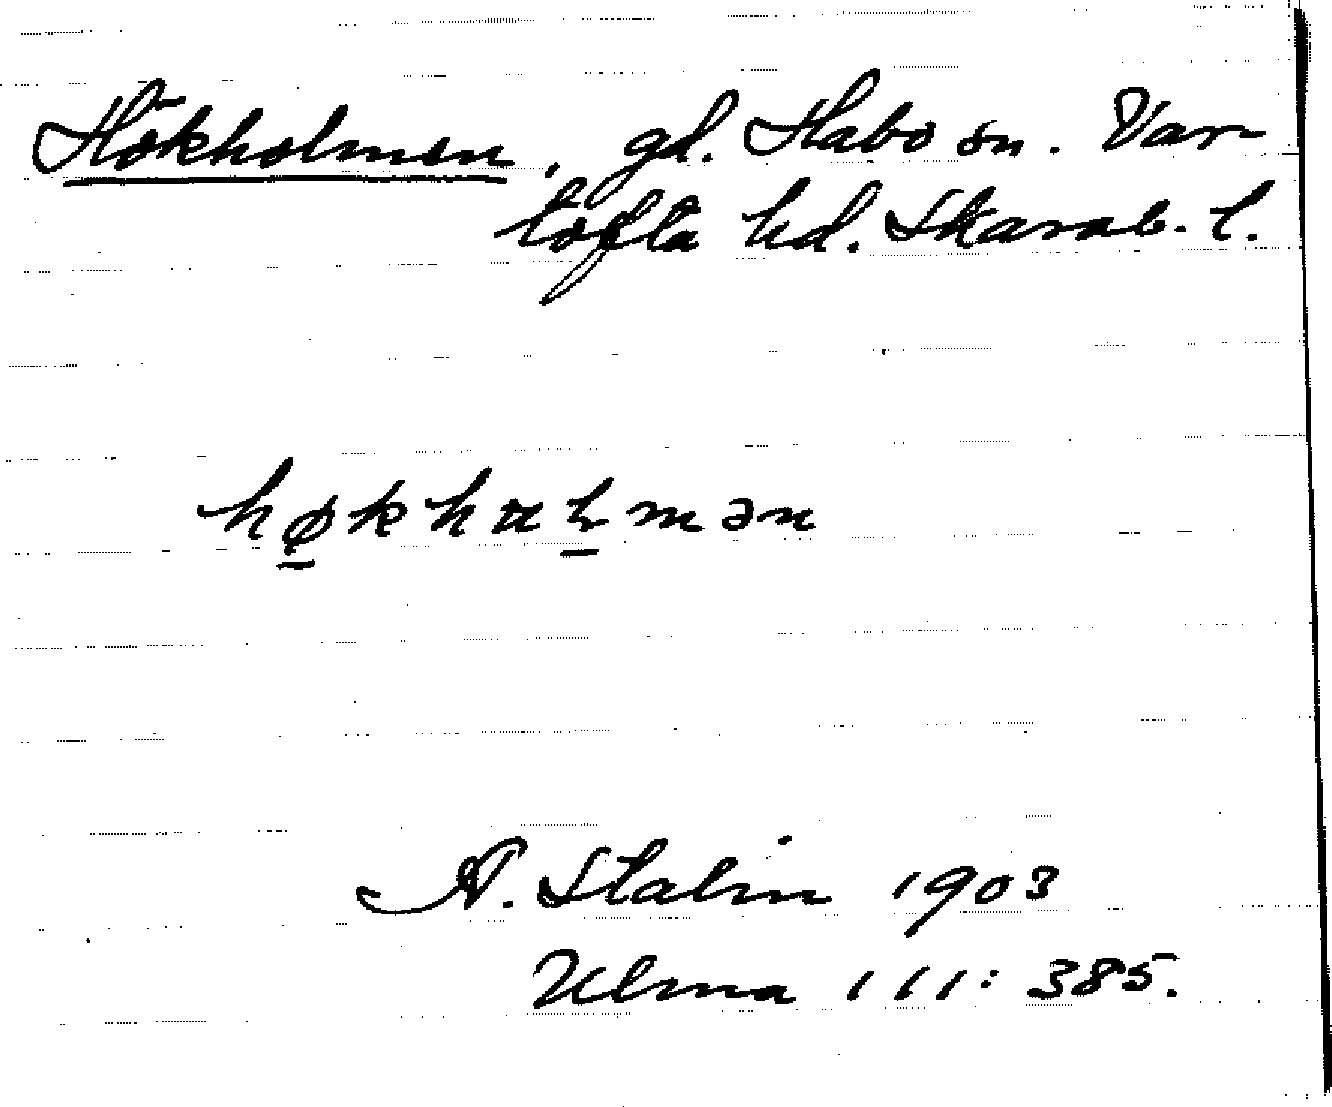 Hökholmen, gd. Habo sn. Var-
tofta hd. Skarab. l.
A. Stalin 1903
Ulma 111: 385.